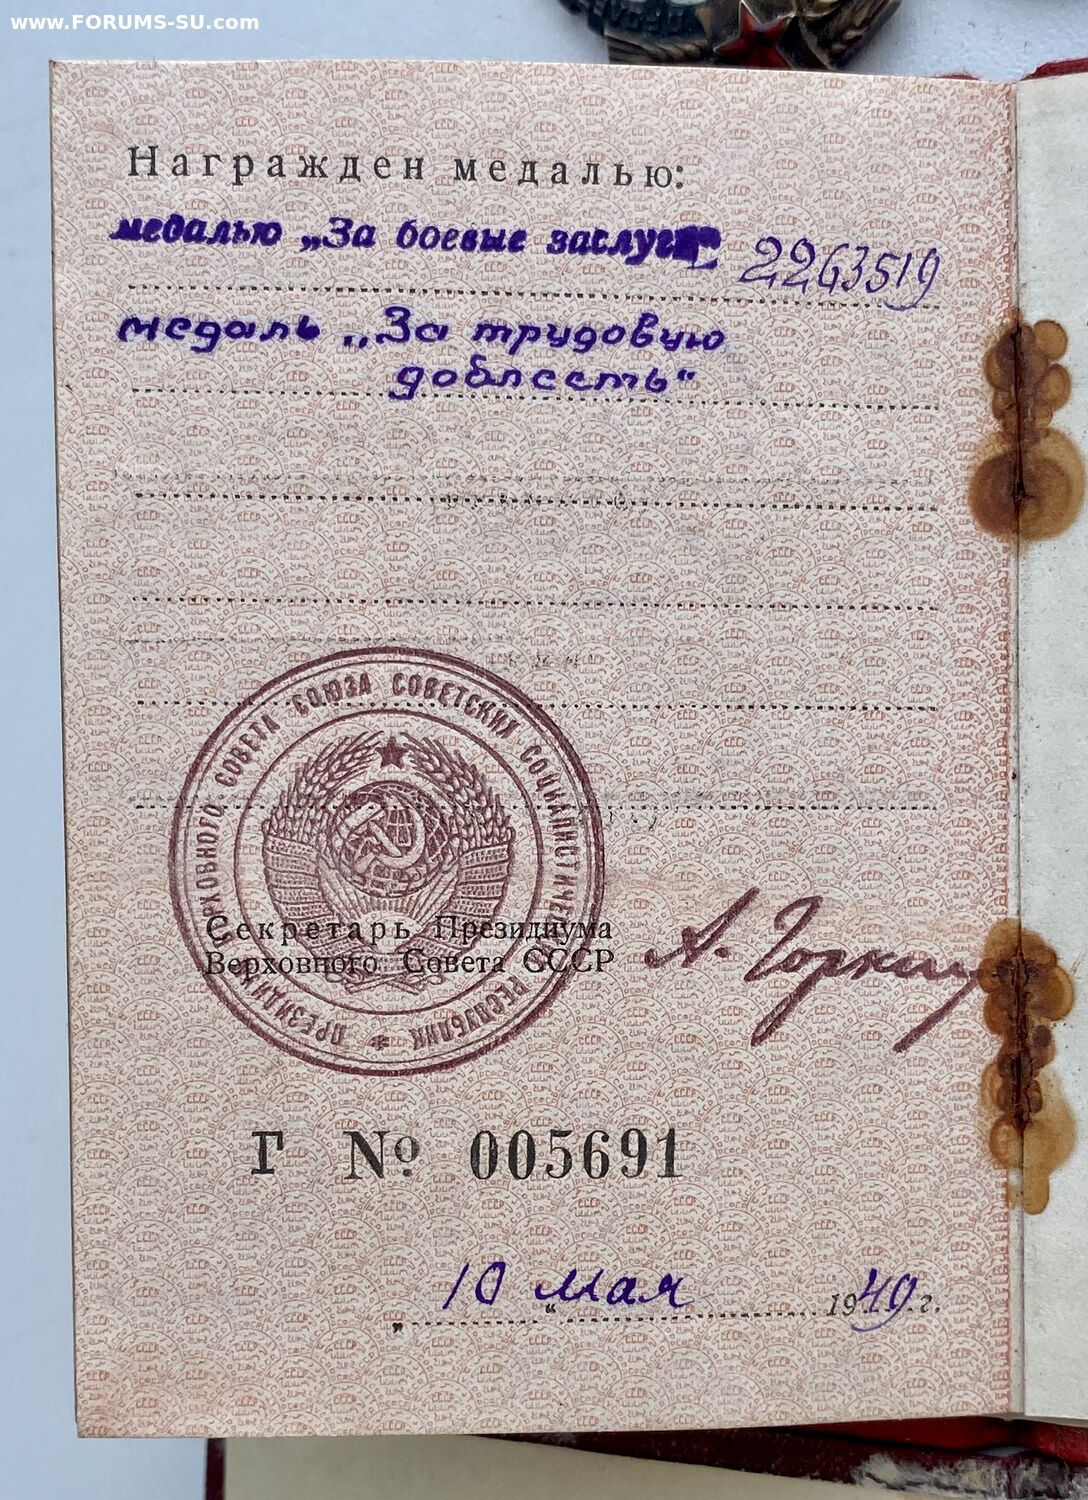 www.FORUMS-SU.com
Награжден медалью:
медалью „За боевые заслуги 2263519
медаль „За трудовую
доблесть“
ПРЕЗИДИУМ ВЕРХОВНОГО СОВЕТА СОЮЗА СОВЕТСКИХ СОЦИАЛИСТИЧЕСКИХ РЕСПУБЛИК *
Секретарь Президиума
Верховного Совета СССР А. Горкин
Г № 005691
„10“ мая 1949 г.